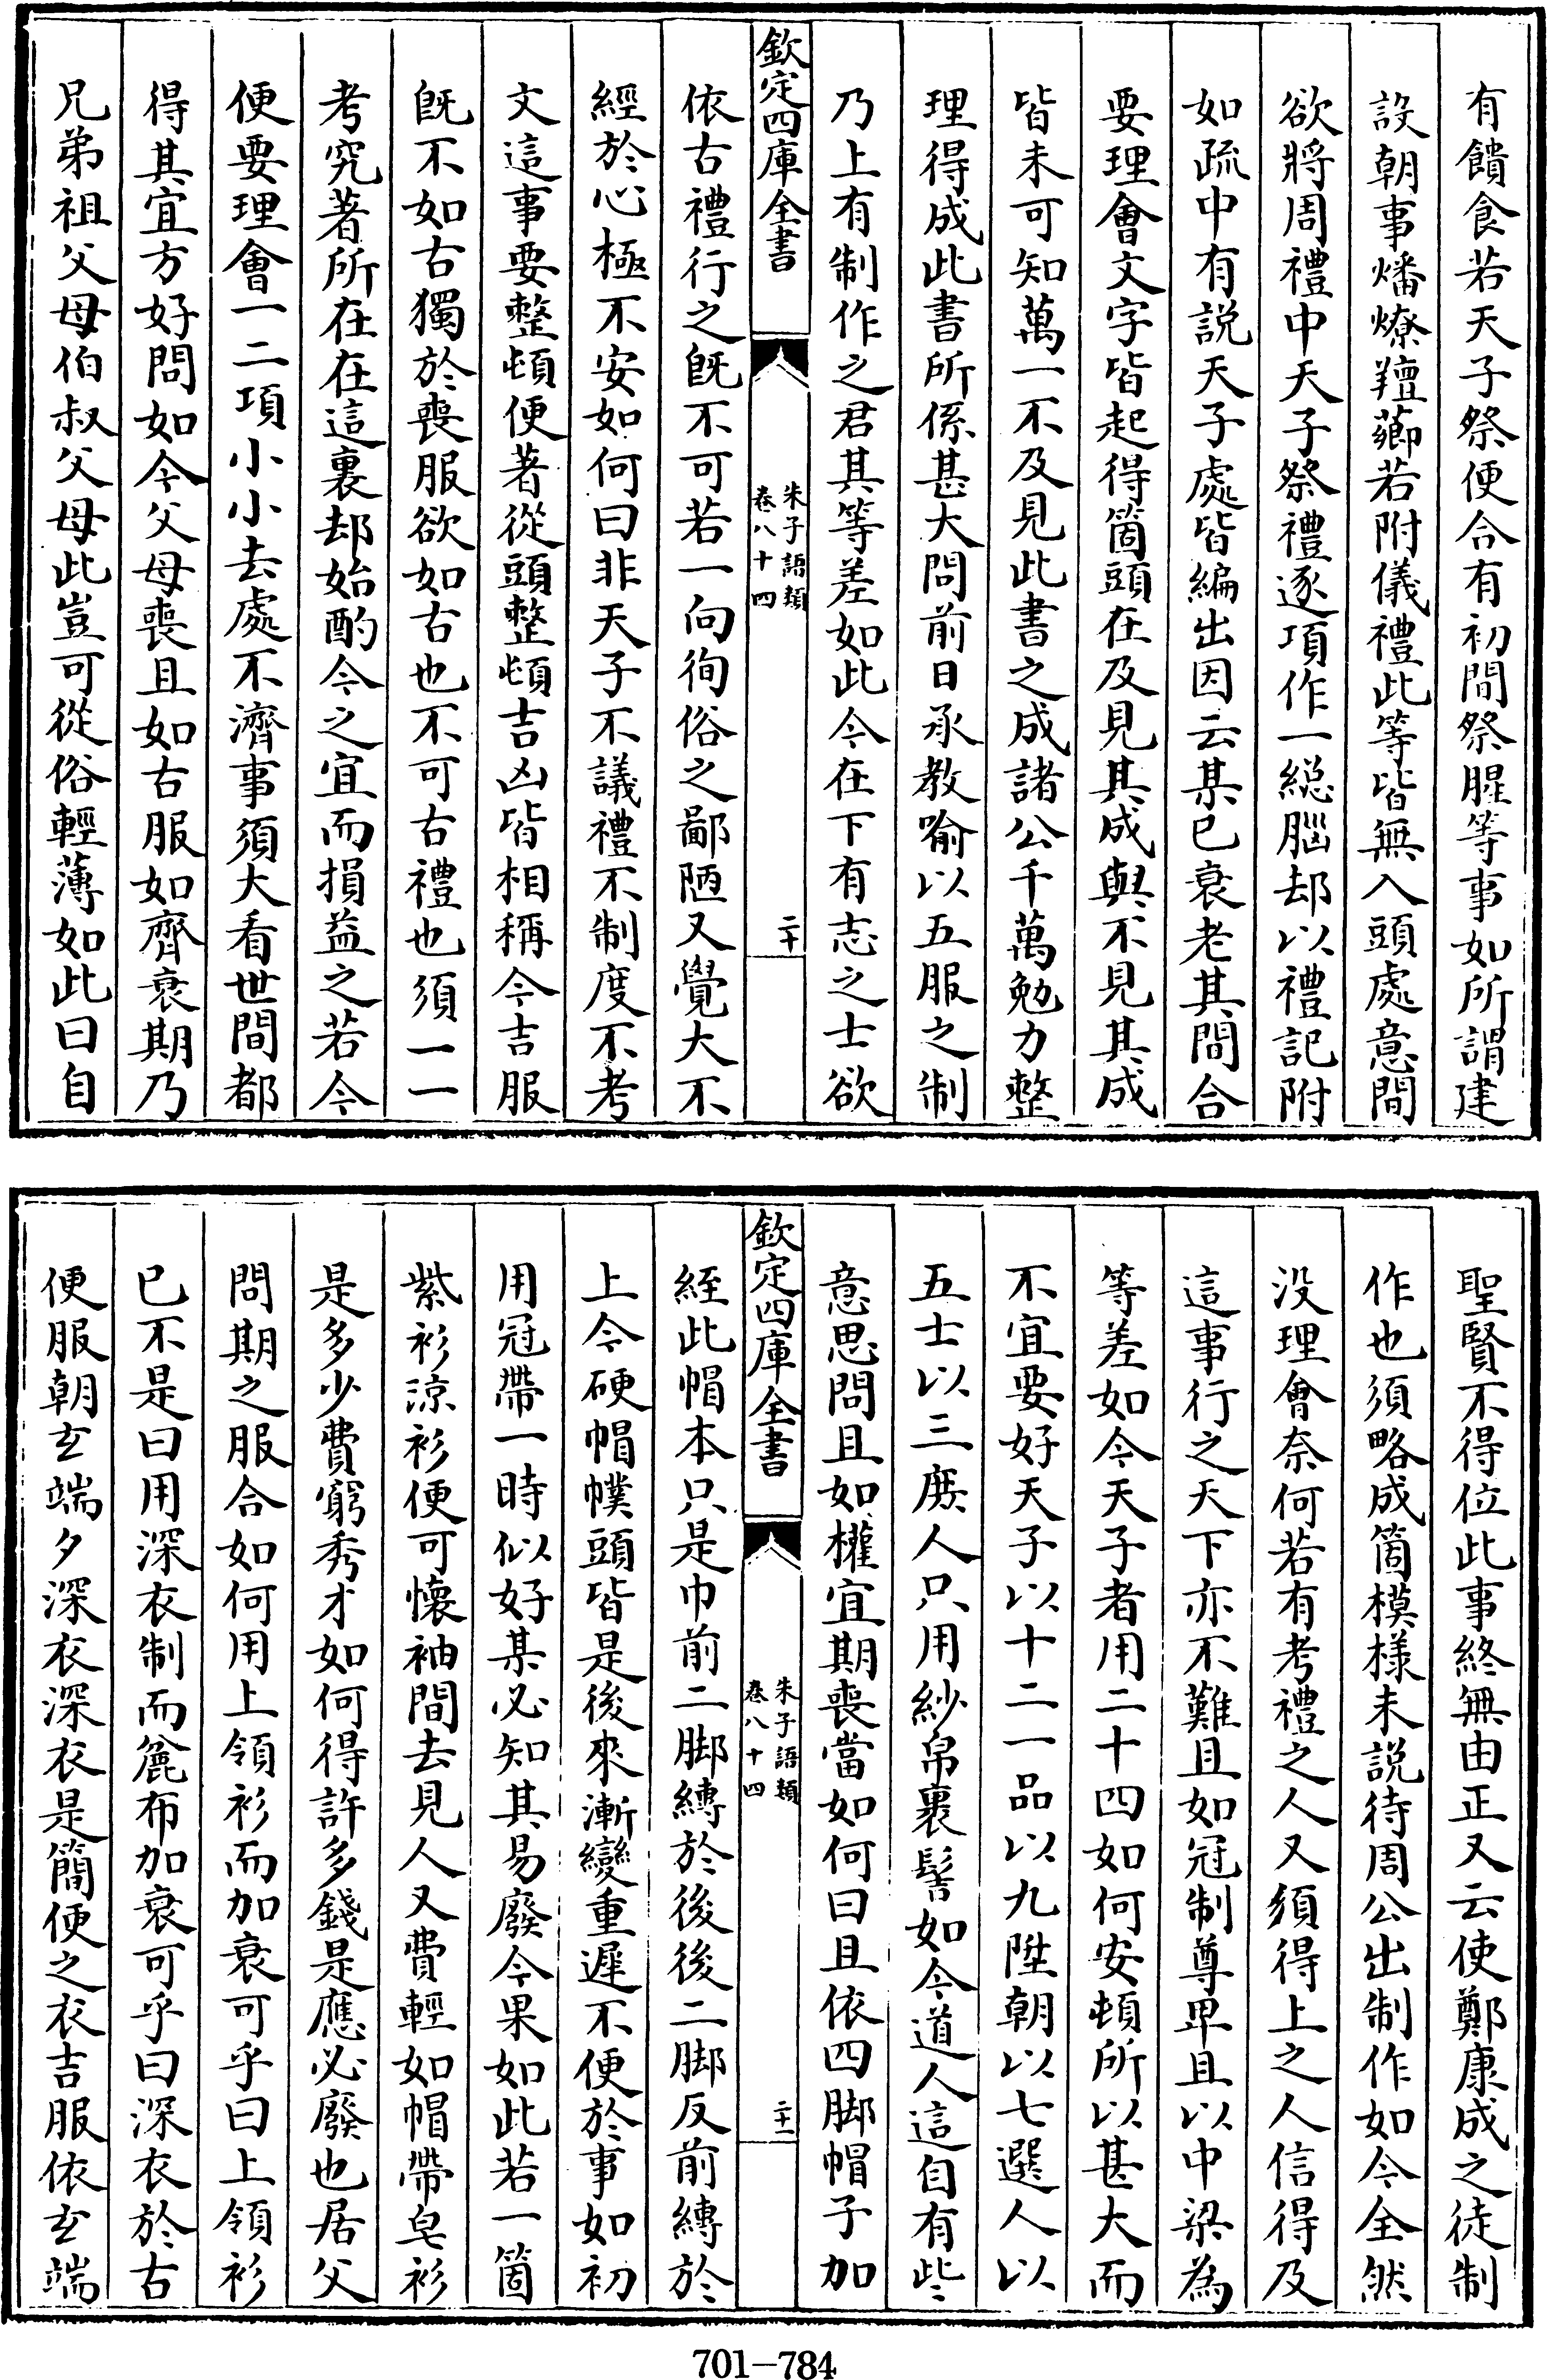 有饋食若天子祭便合有初間祭腥等事如所謂建
設朝事燔燎羶薌若附儀禮此等皆無入頭處意間
欲將周禮中天子祭禮逐項作一緫腦却以禮記附
如疏中有説天子處皆編出因云某已衰老其間合
要理會文字皆起得箇頭在及見其成與不見其成
皆未可知萬一不及見此書之成諸公千萬勉力整
理得成此書所係甚大問前日承教喻以五服之制
乃上有制作之君其等差如此今在下有志之士欲
欽定四庫全書
朱子語類
卷八十四
二十
依古禮行之旣不可若一向徇俗之鄙陋又覺大不
經於心極不安如何曰非天子不議禮不制度不考
文這事要整頓便著從頭整頓吉凶皆相稱今吉服
旣不如古獨於喪服欲如古也不可古禮也須一一
考究著所在在這裏却始酌今之宜而損益之若今
便要理會一二項小小去處不濟事須大看世間都
得其宜方好問如今父母喪且如古服如齊衰期乃
兄弟祖父母伯叔父母此豈可從俗輕薄如此曰自
聖賢不得位此事終無由正又云使鄭康成之徒制
作也須略成箇模様未説待周公出制作如今全然
没理會奈何若有考禮之人又須得上之人信得及
這事行之天下亦不難且如冠制尊卑且以中梁為
等差如今天子者用二十四如何安頓所以甚大而
不宜要好天子以十二一品以九陞朝以七選人以
五士以三庻人只用紗帛裹髻如今道人這自有些
意思問且如權宜期喪當如何曰且依四脚帽子加
欽定四庫全書
朱子語類
卷八十四
二十一
絰此帽本只是巾前二脚縳於後後二脚反前縳於
上今硬帽幞頭皆是後來漸變重遲不便於事如初
用冠帶一時似好某必知其易廢今果如此若一箇
紫衫涼衫便可懷袖間去見人又費輕如帽帶皂衫
是多少費窮秀才如何得許多錢是應必廢也居父
問期之服合如何用上領衫而加衰可乎曰上領衫
已不是曰用深衣制而麄布加衰可乎曰深衣於古
便服朝玄端夕深衣深衣是簡便之衣吉服依玄端
701—784